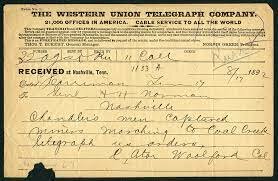 THE WESTERN UNION TELEGRAPH COMPANY.
21,000 OFFICES IN AMERICA. CABLE SERVICE TO ALL THE WORLD
THOS. T. ECKERT, General Manager. NORVIN GREEN, President.
11 Coll
RECEIVED at Nashville, Tenn. 8/17 1892
Harriman Tenn 17
To Genl H H Norman
Nashville
Chandler's men captured
miners marching to Coal Creek
telegraph us orders.
C. Aton Woolford Col